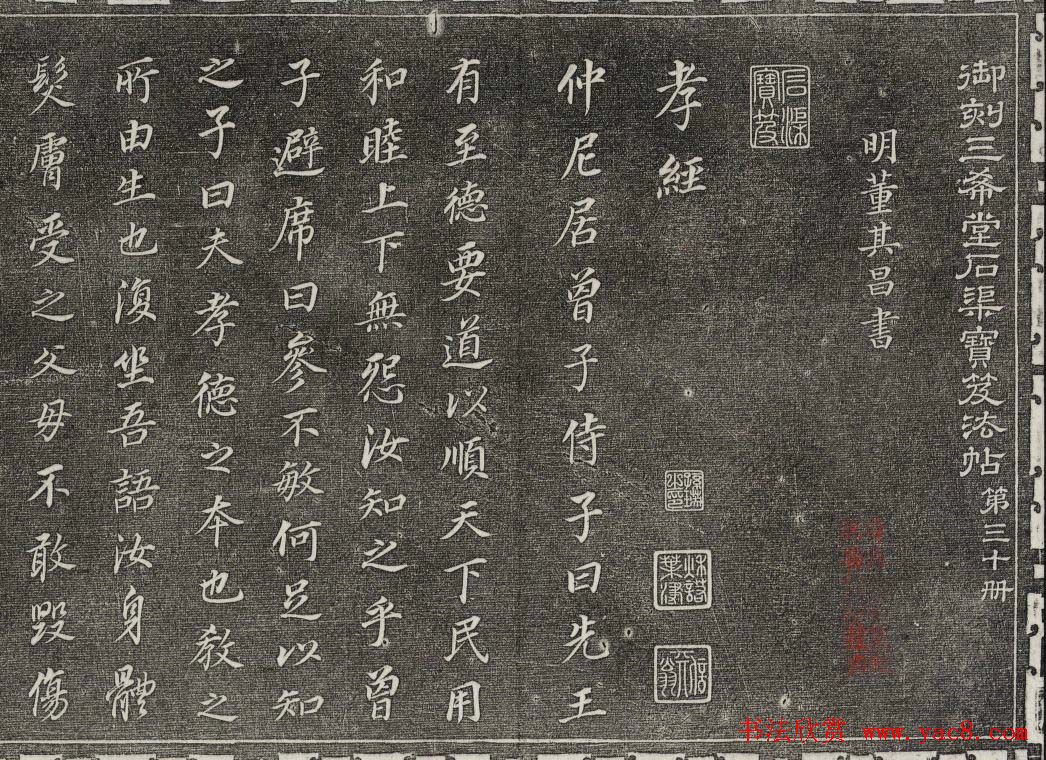 御刻三希堂石渠寶笈法帖 第三十冊
明董其昌書
石渠寶笈
孝經
仲尼居曾子侍子曰先王
有至德要道以順天下民用
和睦上下無怨汝知之乎曾
子避席曰參不敏何足以知
之子曰夫孝德之本也教之
所由生也復坐吾語汝身體
髮膚受之父母不敢毀傷
书法欣赏 www.yac8.com